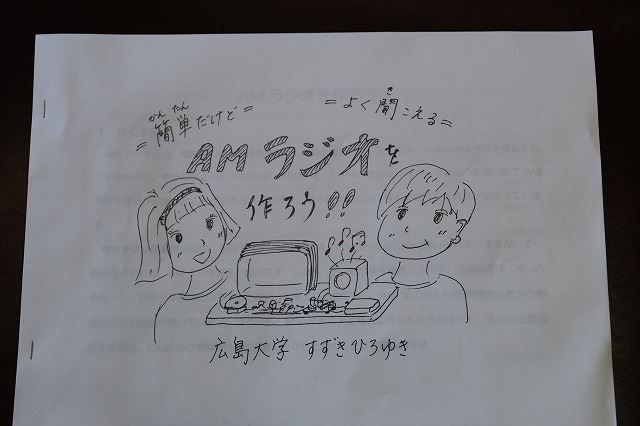 =簡単だけど=
かんたん
=よく聞こえる=
き
AMラジオを
作ろう!!
広島大学 すずきひろゆき